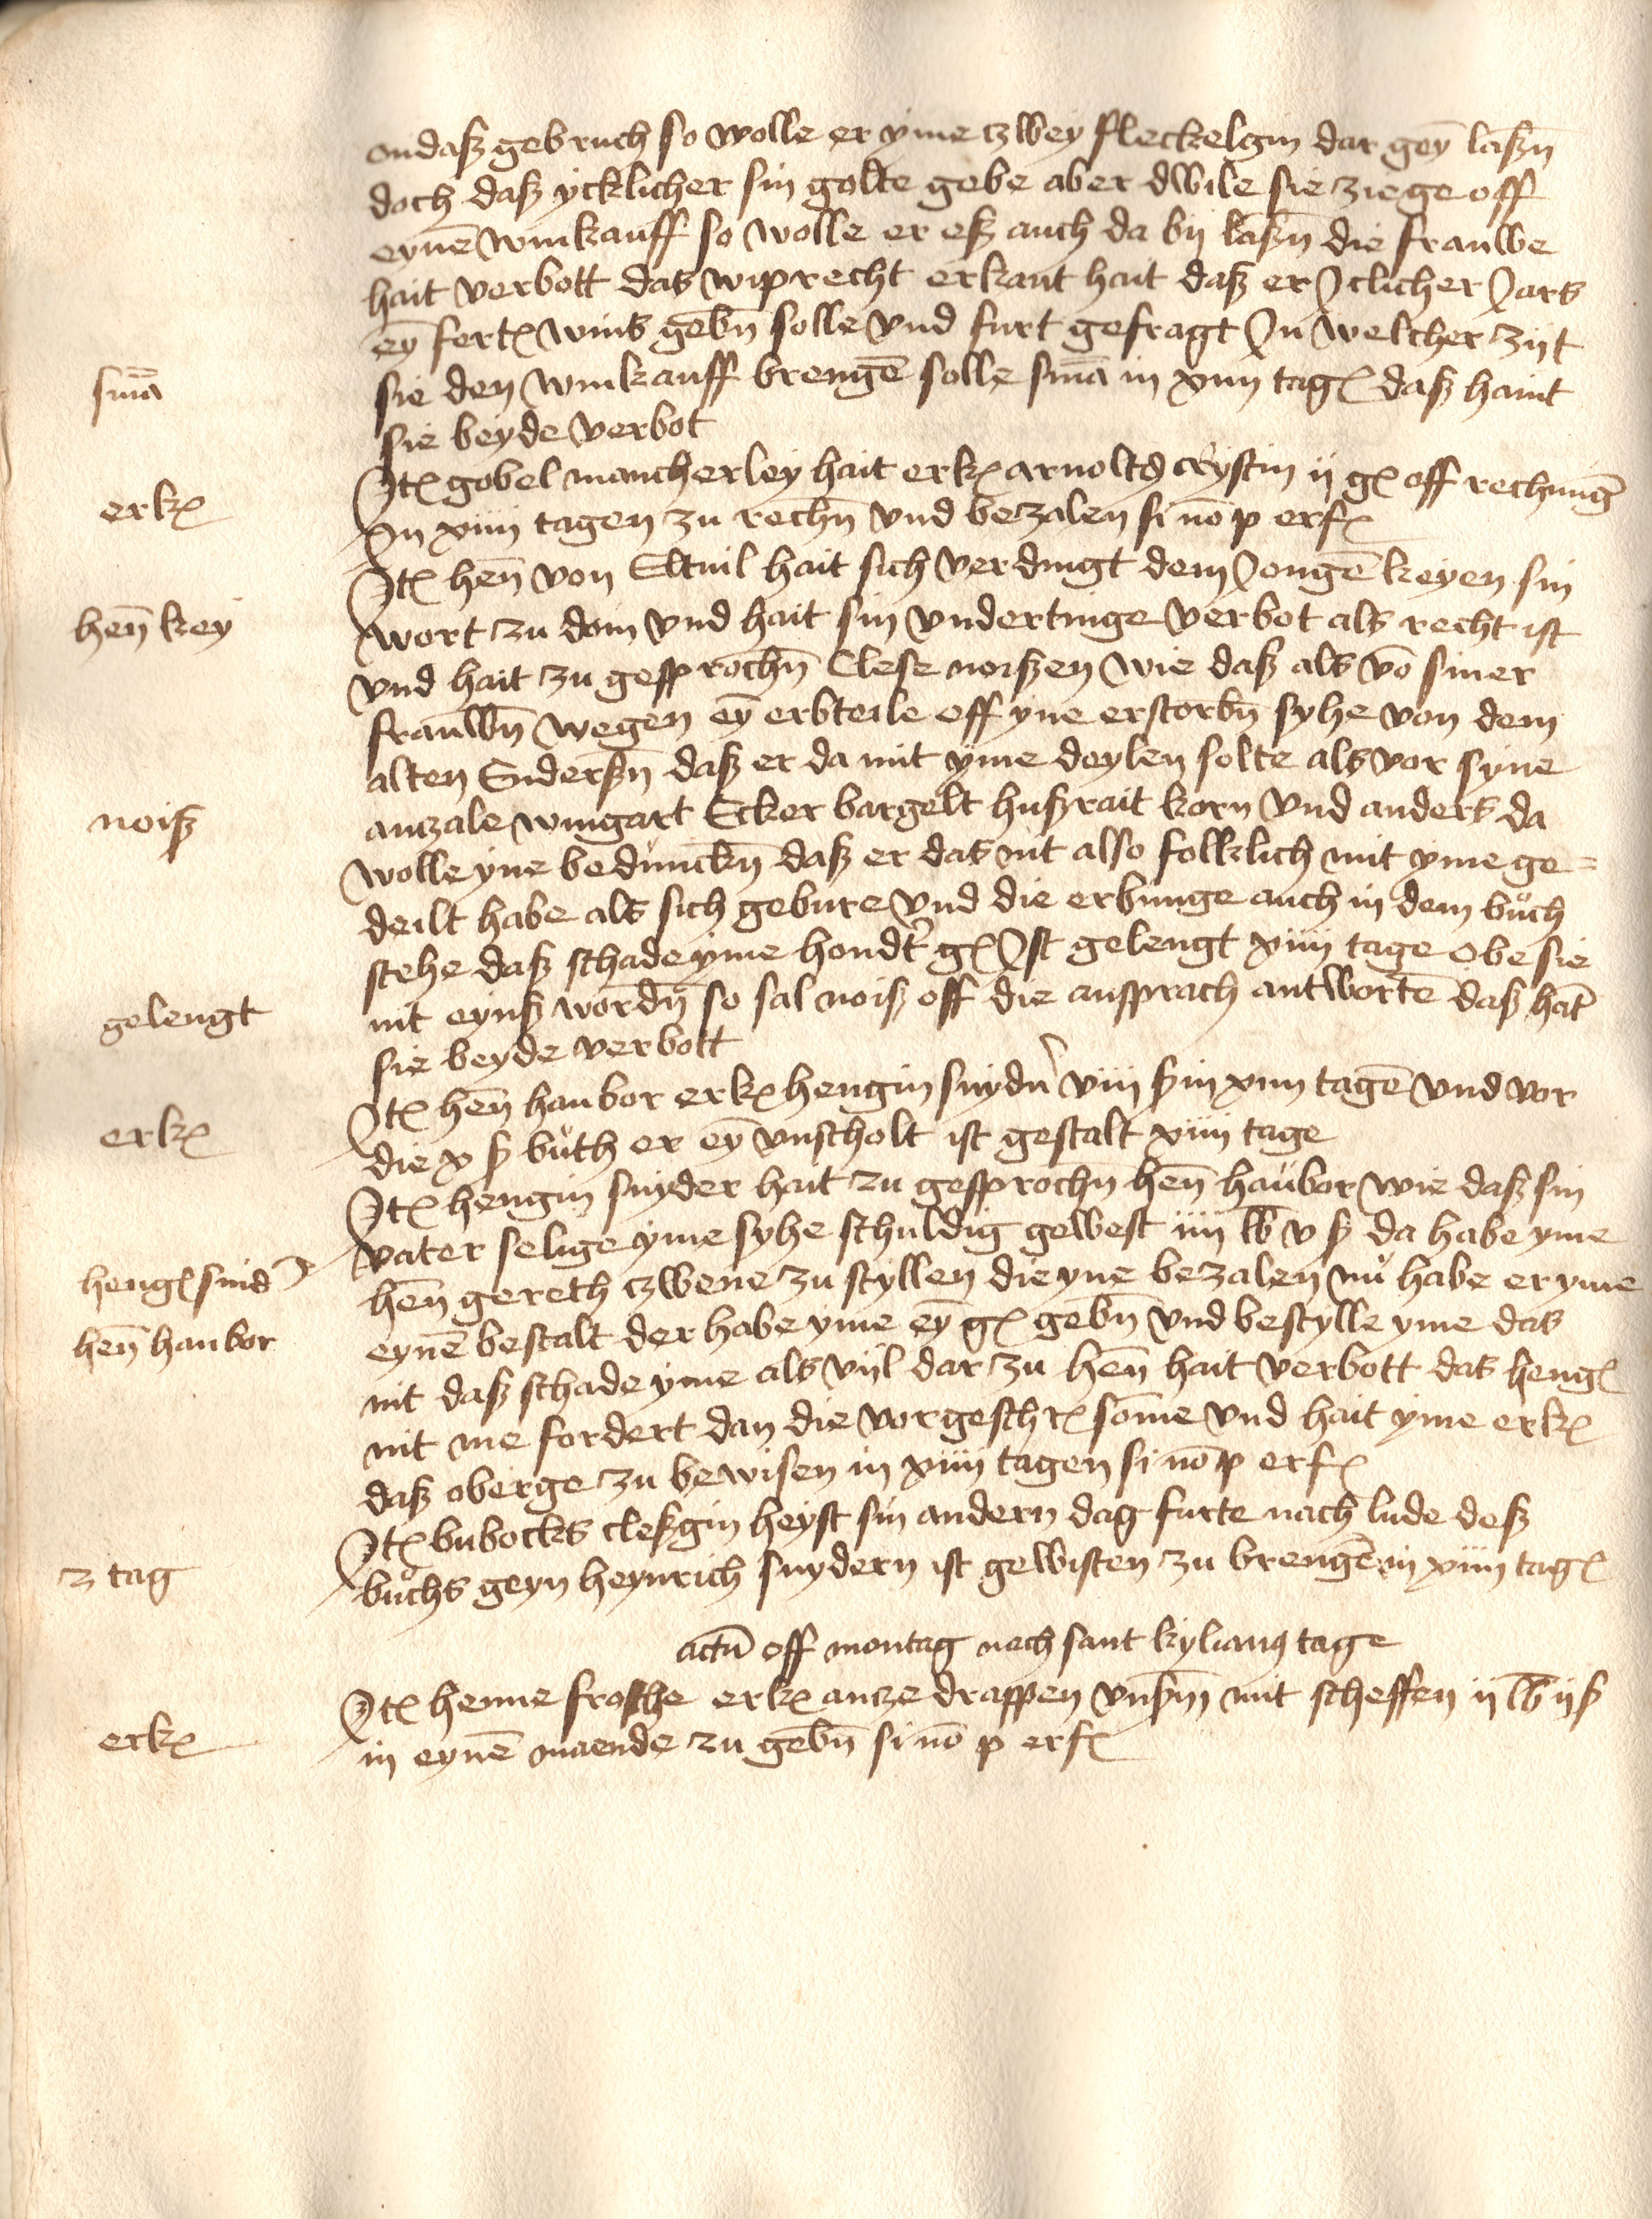 ondaß gebruch so wolle er yme zwey fleckelgin dar geȳ laßn̄
doch daß ycklicher sin golte gebe aber dwile sie ziege off
eynē winkauff so wolle er eß auch da bij laßn̄ die frauwe
hait verbott das wiprecht erkant hait daß er Iclicher Jars
eȳ fertel wins gebn̄ solle vnd furt gefragt In welcher zijt
sm̄a
sie den winkauff brengē solle sm̄a in xiiii tagen daß haint
sie beyde verbot
Itē gobel mancherley hait erkē arnolts crystin ij gē off rechnungē
erkē
In xiiii tagen zu rechn̄ vnd bezalen si nō p erfē
Itē hen̄ von Eltuil hait sich verdingt dem Jongē keyen sin
hen̄ key
wort zu doin vnd hait sin vndertinge verbot als recht ist
vnd hait zu gesprochn̄ Clese noißen wie daß als vō siner
frauwn̄ wegen eȳ erbteile off yne erstorbn̄ syhe von dem
alten Snderßn̄ daß er da mit yme deylen solte als vor syne
noiß
anczale wingart Ecker bargelt hußrait korn vnd anders da
wolle yne beduncken̄ daß er das nit also follklich mit yme ge=
deilt habe als sich gebure vnd die erbunge auch in dem buͦch
stehe daß schade yme hondt̾ gē Ist gelengt xiiii tage obe sie
gelengt
nit eynß wordn̄ so sal noiß off die ansprach antwortē daß hat̄
sie beyde verbott
Itē hen̄ haubor erkē hengin snydn̾ viii ß in xiiii tagē vnd vor
erkē
die x ß buͦth er eȳ vnscholt ist gestalt xiiii tage
Itē hengin snyder hait zu gesprochn̄ hen̄ haubor wie daß sin
vater selige yme syhe schuldig gewest iiii lb v ß da habe yme
hengē snid̾
hen̄ gereth zwene zu styllen die yne bezalen nuͦ habe er yme
hen̄ haubor
eynē bestalt der habe yme eȳ gē gebn̄ vnd bestylle yme das
nit daß schade yme als vijl dar zu hen̄ hait verbott das hengē
nit me fordert dan die vorgeschrē som̄e vnd hait yme erkē
daß oberge zu bewisen in xiiii tagen si nō p erfē
Itē bubocks cleßgin heyst sin andern dag furte nach lude deß
z tag
buͦchs geyn heynrich snydern ist gewisten zu brengē in xiiii tagē
actū off montag nach sant kylianus tage
Itē henne frosche erkē ancze drappen vnßm̄ mit scheffen ij lb ij ß
erkē
in eynē maende zu gebn̄ si nō p erfē